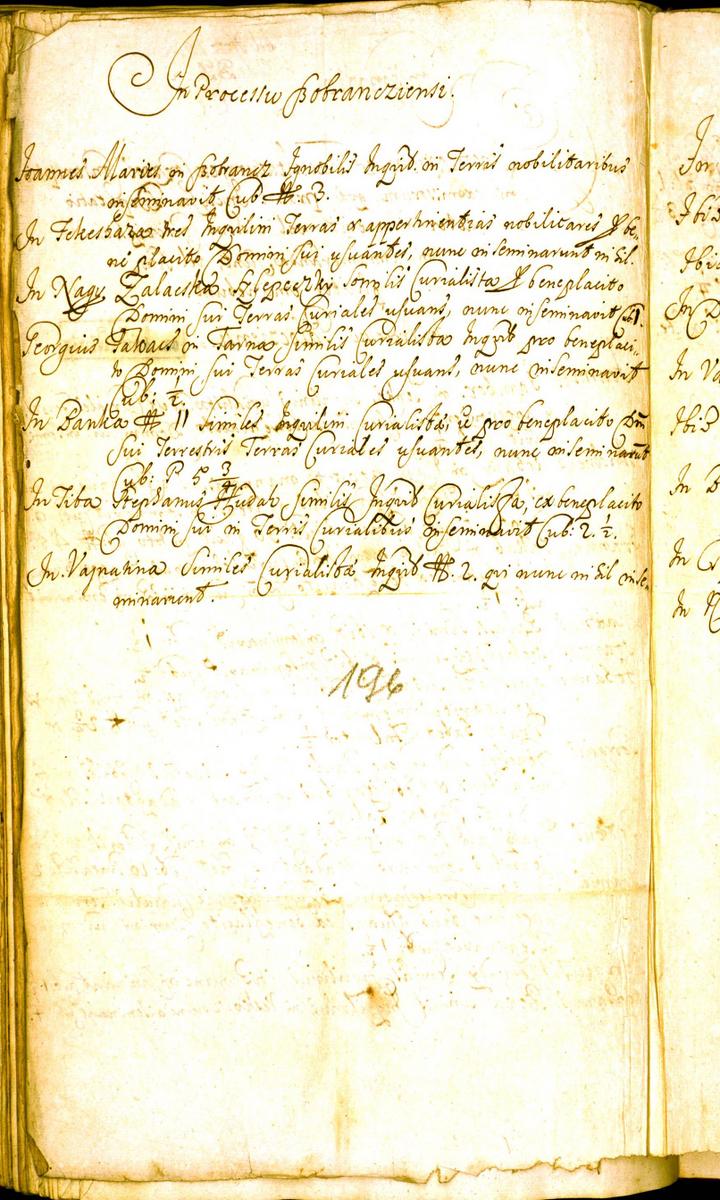 In Processu Sobrancziensi.
Joannes Alavies in Sobrancz Ignobilis Inquil. in Terris nobilitaribus
inseminavit Cub. 3.
In Feheshaza tres Inquilini Terras & appertinentias nobilitares be-
ne placito Domini sui usuantes, nunc inseminarunt nihil.
In Nagy Zalacska Szlepeczky similis Curialista beneplacito
Domini sui Terras Curiales usuans, nunc inseminavit
Georgius Takacs in Tarna similis Curialista Inquil. pro beneplaci-
to Domini sui Terras Curiales usuans, nunc inseminavit
Cub: ½.
In Banka 11 Similes Inquilini Curialistæ, pro beneplacito Dni
sui Terrestris Terras Curiales usuantes, nunc inseminarunt
Cub: 5 3/4
In Tiba Stephanus Hudak similis Inquil. Curialista, ex beneplacito
Domini sui in Terris Curialibus inseminavit Cub: 2. ½.
In Vajnatina Similes Curialistæ Inquil. 2. qui nunc nihil inse-
minarunt.
196
In
Ibid
Ibid
In
In Va
Ibid
In B
In
In